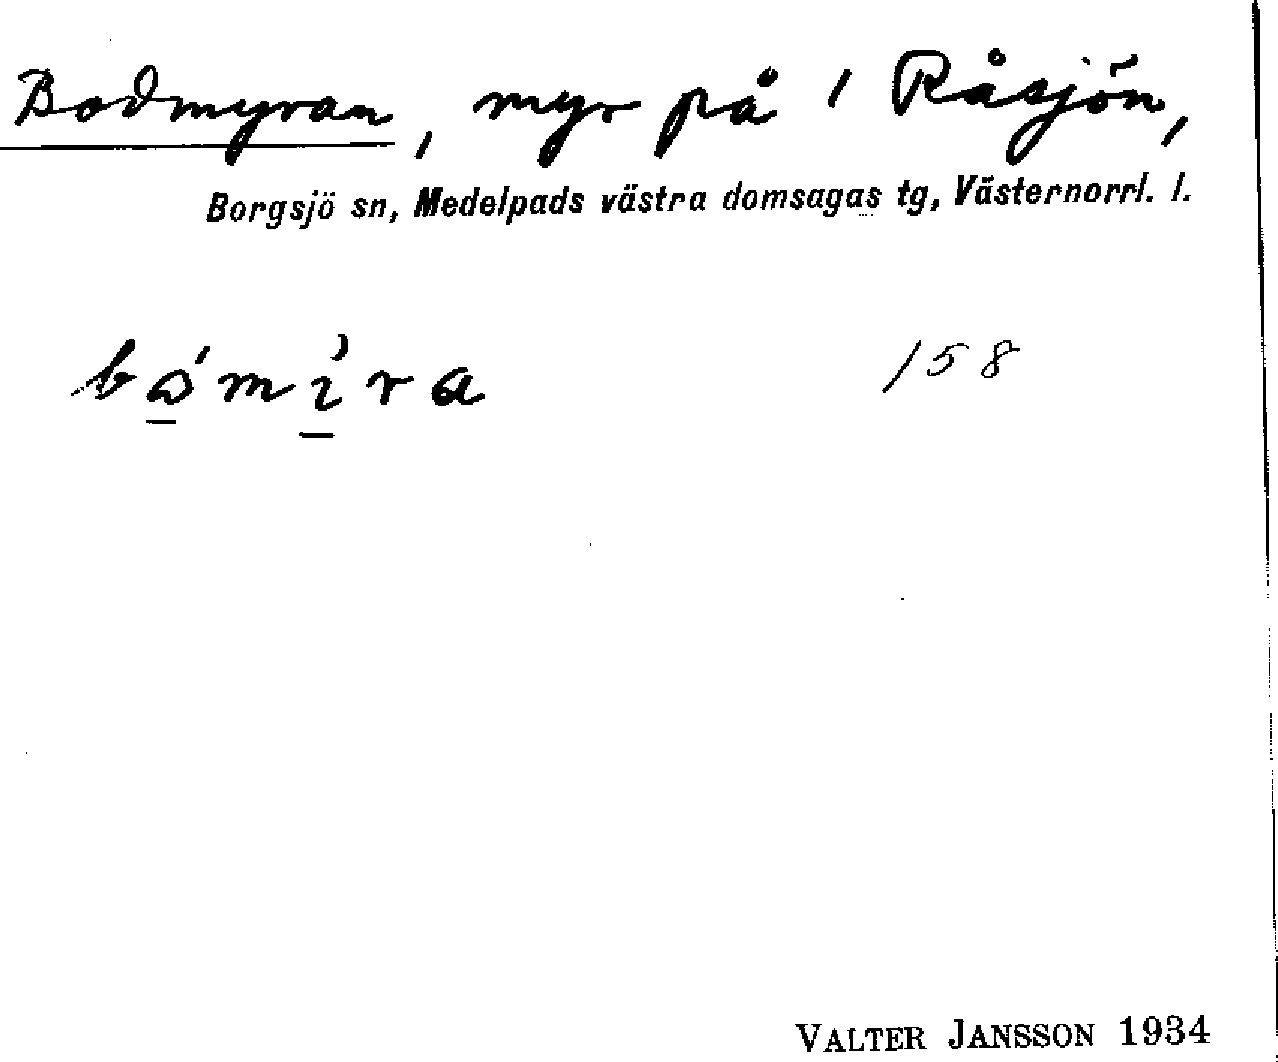 Bodmyran, myr på 1 Råsjön,
Borgsjö sn, Medelpads västra domsagas tg, Västernorrl. l.
bɷ̠́mı̠̀ra 158
VALTER JANSSON 1934